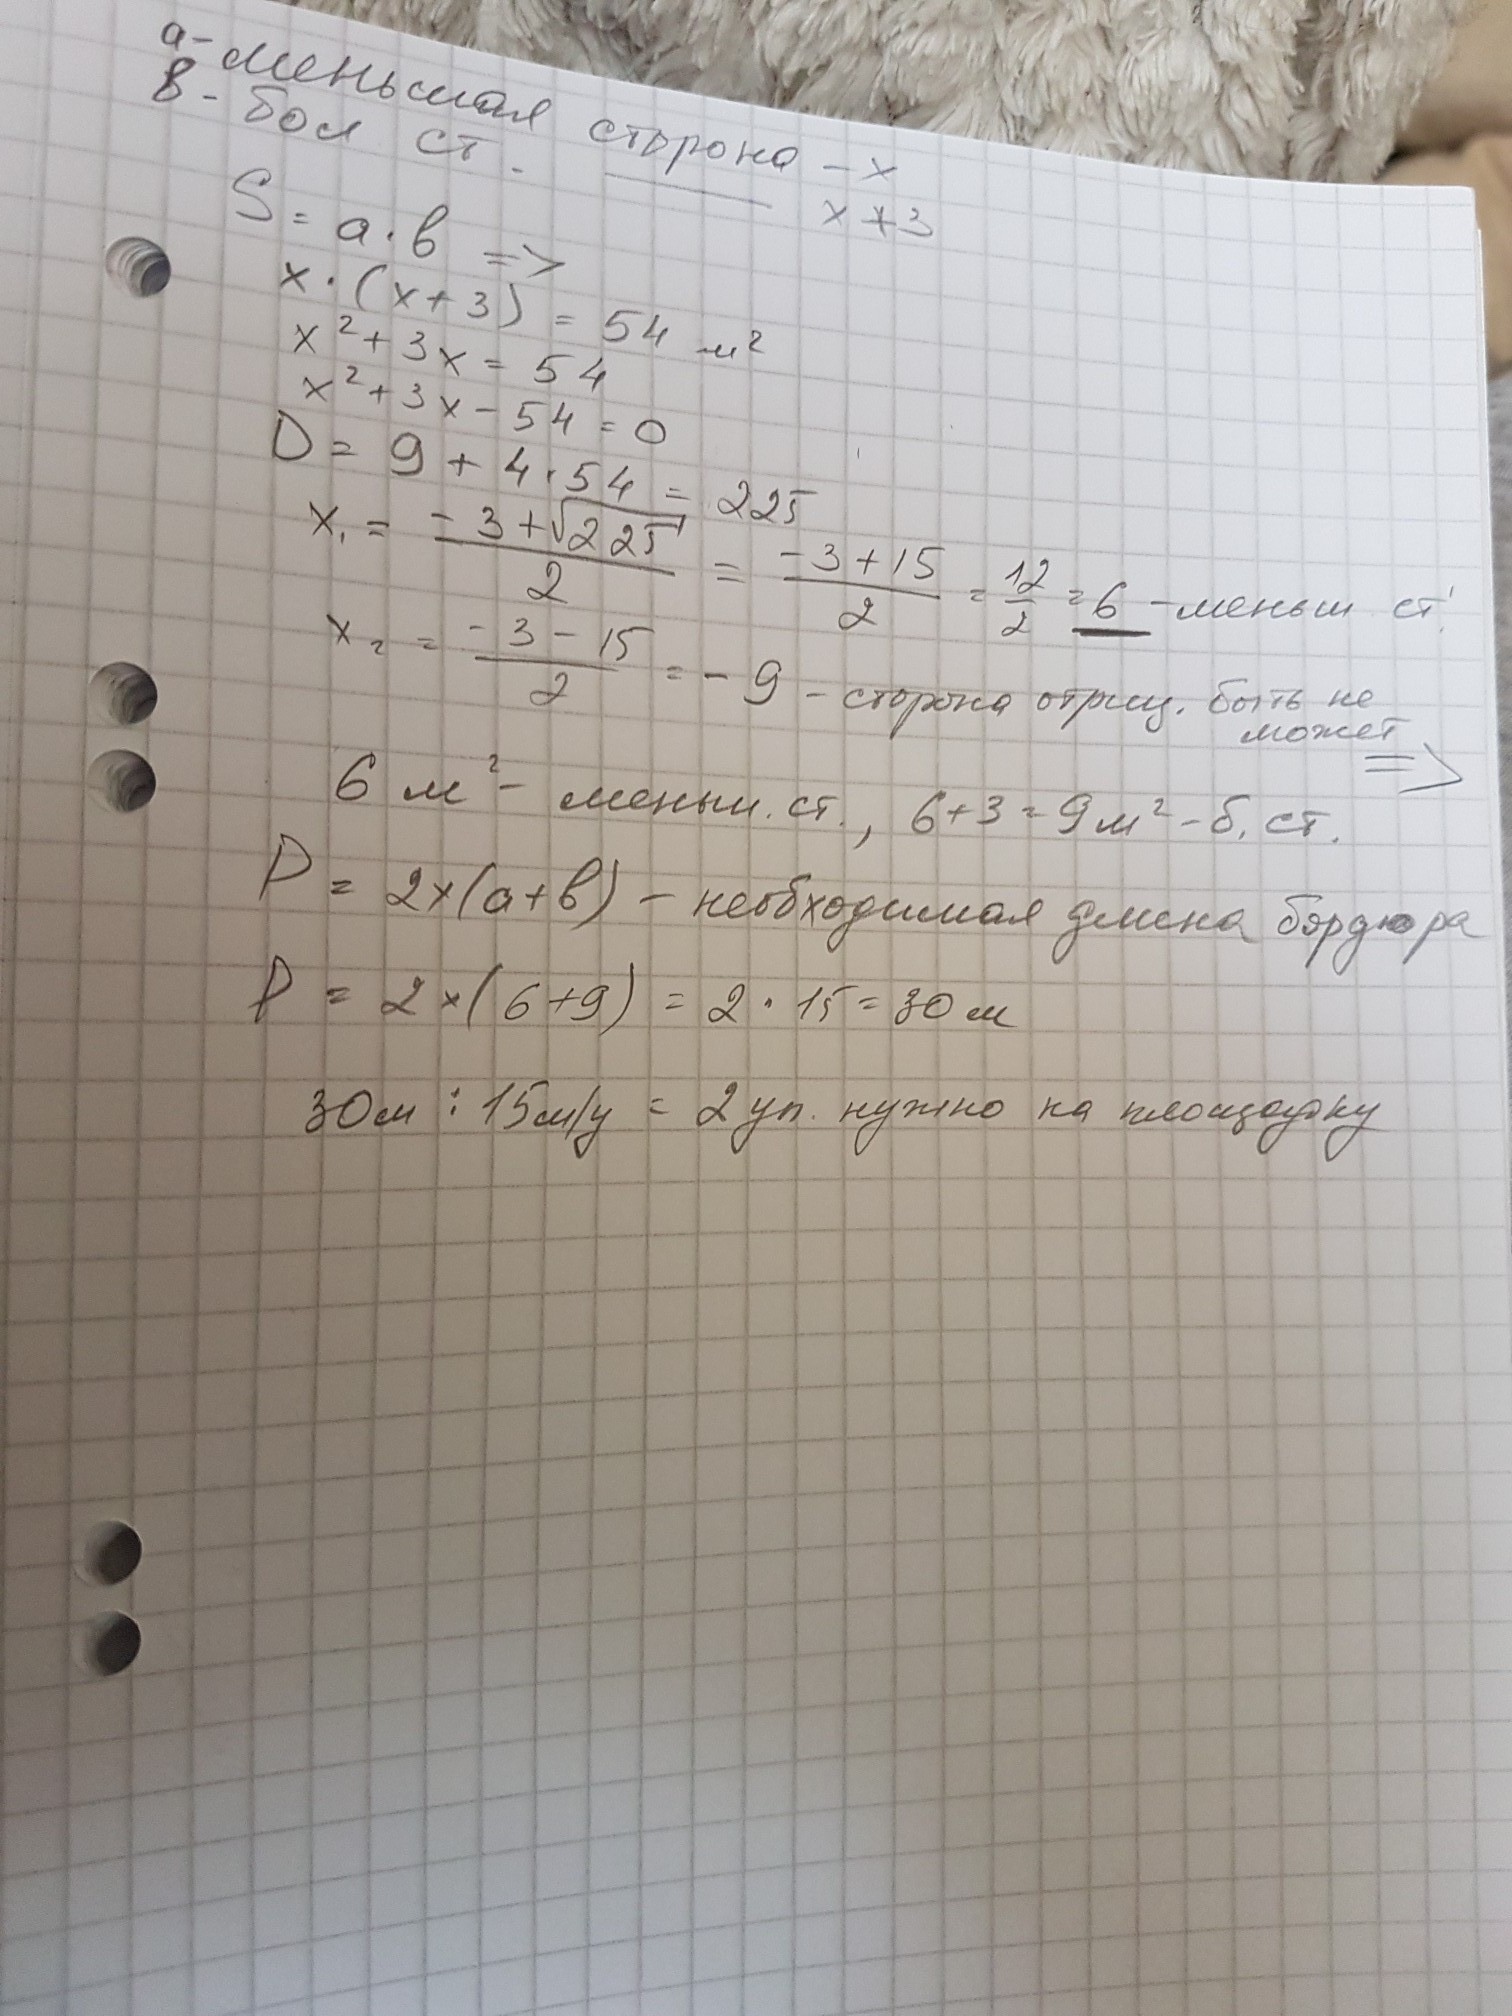 а - меньшая сторона - х
в - бол ст. —— х+3
S = а · в =>
х · (х + 3) = 54 м²
х² + 3х = 54
х² + 3х - 54 = 0
D = 9 + 4 · 54 = 225
х₁ = (-3 + √225)/2 = (-3 + 15)/2 = 12/2 = 6 - меньш. ст.
х₂ = (-3 - 15)/2 = -9 - сторона отриц. быть не
может =>
6 м² - меньш. ст., 6 + 3 = 9 м² - б. ст.
Р = 2×(а + в) - необходимая длина бордюра
Р = 2×(6+9) = 2 · 15 = 30 м
30м : 15м/у = 2 уп. нужно на площадку